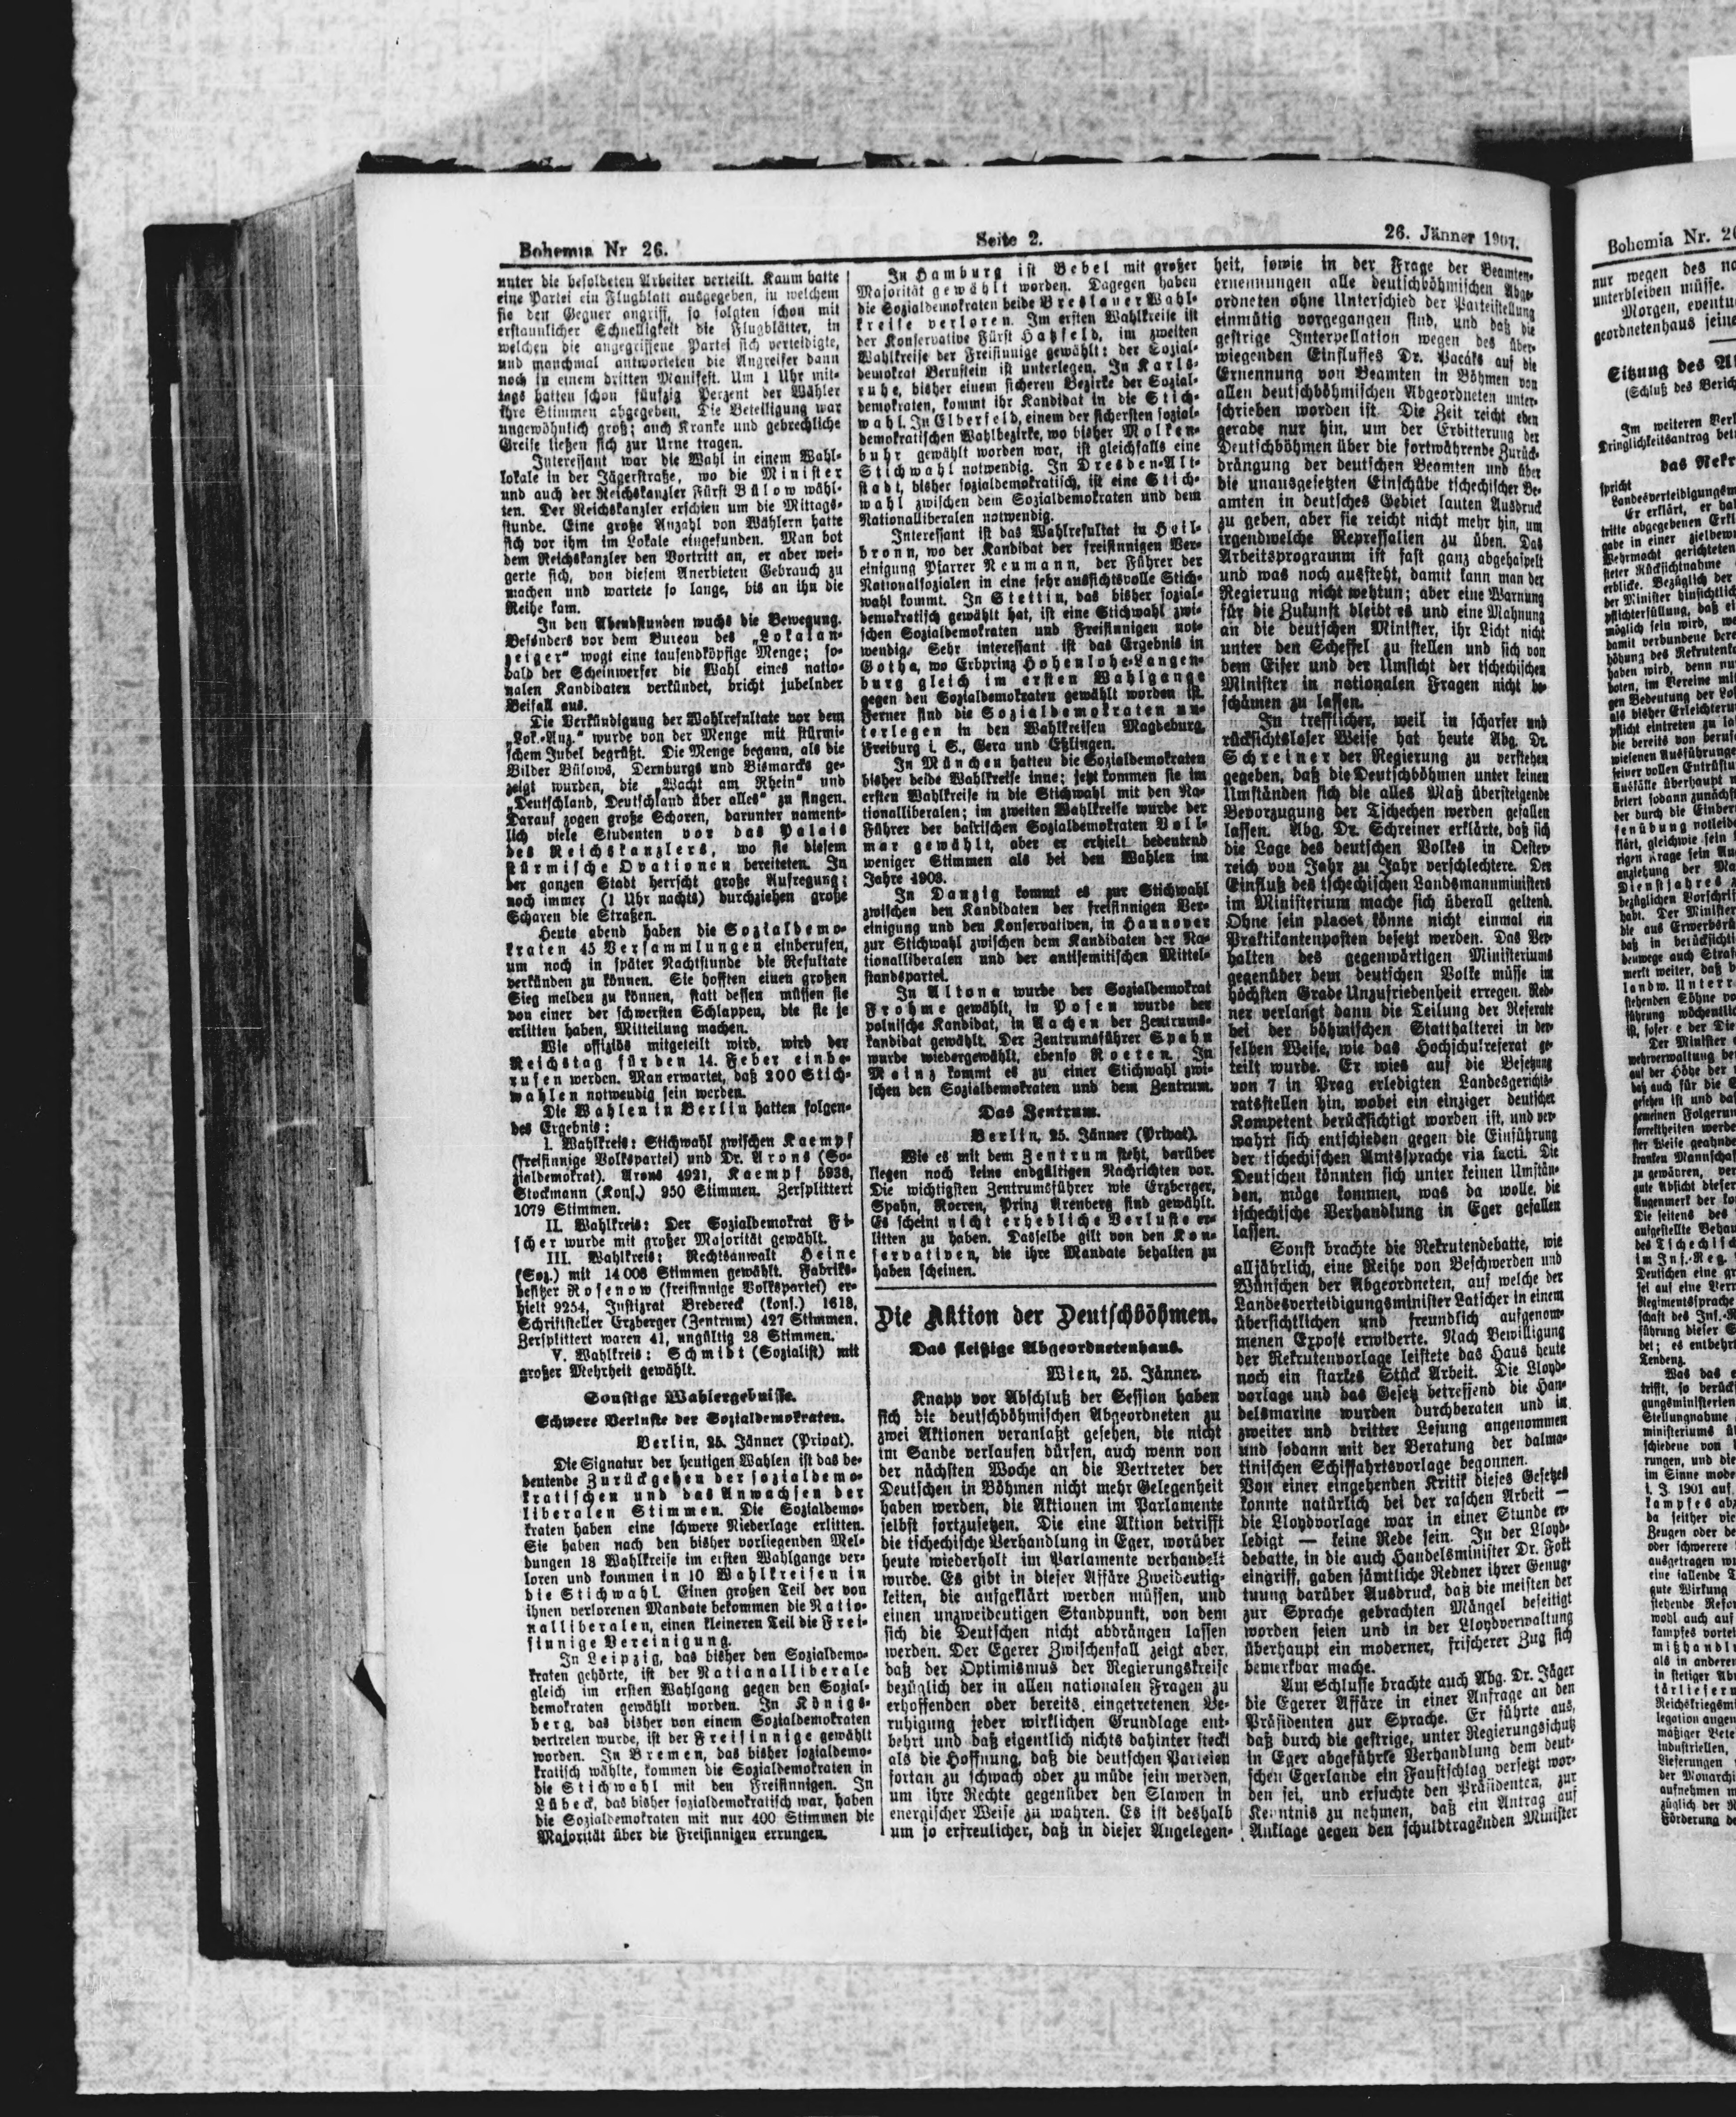 Bohemia Nr 26.
Seite 2.
26. Jänner 1907.
unter die besoldeten Arbeiter verteilt. Kaum hatte
eine Partei ein Flugblatt ausgegeben, in welchem
sie den Gegner angriff, so folgten schon mit
erstaunlicher Schnelligkeit die Flugblätter, in
welchen die angegriffene Partei sich verteidigte,
und manchmal antworteten die Angreifer dann
noch in einem dritten Manifest. Um 1 Uhr mit-
tags hatten schon fünfzig Perzent der Wähler
ihre Stimmen abgegeben. Die Beteiligung war
ungewöhnlich groß; auch Kranke und gebrechliche
Greise ließen sich zur Urne tragen.
Interessant war die Wahl in einem Wahl-
lokale in der Jägerstraße, wo die Minister
und auch der Reichskanzler Fürst Bülow wähl-
ten. Der Reichskanzler erschien um die Mittags-
stunde. Eine große Anzahl von Wählern hatte
sich vor ihm im Lokale eingefunden. Man bot
dem Reichskanzler den Vortritt an, er aber wei-
gerte sich, von diesem Anerbieten Gebrauch zu
machen und wartete so lange, bis an ihn die
Reihe kam.
In den Abendstunden wuchs die Bewegung.
Besonders vor dem Bureau des „Lokalan-
zeiger" wogt eine tausendköpfige Menge; so-
bald der Scheinwerfer die Wahl eines natio-
nalen Kandidaten verkündet, bricht jubelnder
Beifall aus.
Die Verkündigung der Wahlresultate vor dem
„Lok.-Anz." wurde von der Menge mit stürmi-
schem Jubel begrüßt. Die Menge begann, als die
Bilder Bülows, Dernburgs und Bismarcks ge-
zeigt wurden, die „Wacht am Rhein" und
„Deutschland, Deutschland über alles" zu singen.
Darauf zogen große Scharen, darunter nament-
lich viele Studenten vor das Palais
des Reichskanzlers, wo sie diesem
stürmische Ovationen bereiteten. In
der ganzen Stadt herrscht große Aufregung;
noch immer (1 Uhr nachts) durchziehen große
Scharen die Straßen.
Heute abend haben die Sozialdemo-
kraten 45 Versammlungen einberufen,
um noch in später Nachtstunde die Resultate
verkünden zu können. Sie hofften einen großen
Sieg melden zu können, statt dessen müssen sie
von einer der schwersten Schlappen, die sie je
erlitten haben, Mitteilung machen.
Wie offiziös mitgeteilt wird, wird der
Reichstag für den 14. Feber einbe-
rufen werden. Man erwartet, daß 200 Stich-
wahlen notwendig sein werden.
Die Wahlen in Berlin hatten folgen-
des Ergebnis:
I. Wahlkreis: Stichwahl zwischen Kaempf
(freisinnige Volkspartei) und Dr. Arons (So-
zialdemokrat). Arons 4921, Kaempf 5938,
Stockmann (Kons.) 950 Stimmen. Zersplittert
1079 Stimmen.
II. Wahlkreis: Der Sozialdemokrat Fi-
scher wurde mit großer Majorität gewählt.
III. Wahlkreis: Rechtsanwalt Heine
(Soz.) mit 14 008 Stimmen gewählt. Fabriks-
besitzer Rosenow (freisinnige Volkspartei) er-
hielt 9254, Justizrat Bredereck (kons.) 1618,
Schriftsteller Erzberger (Zentrum) 427 Stimmen.
Zersplittert waren 41, ungültig 28 Stimmen.
V. Wahlkreis: Schmidt (Sozialist) mit
großer Mehrheit gewählt.
Sonstige Wahlergebnisse.
Schwere Verluste der Sozialdemokraten.
Berlin, 25. Jänner (Privat).
Die Signatur der heutigen Wahlen ist das be-
deutende Zurückgehen der sozialdemo-
kratischen und das Anwachsen der
liberalen Stimmen. Die Sozialdemo-
kraten haben eine schwere Niederlage erlitten.
Sie haben nach den bisher vorliegenden Mel-
dungen 18 Wahlkreise im ersten Wahlgange ver-
loren und kommen in 10 Wahlkreisen in
die Stichwahl. Einen großen Teil der von
ihnen verlorenen Mandate bekommen die Natio-
nalliberalen, einen kleineren Teil die Frei-
sinnige Vereinigung.
In Leipzig, das bisher den Sozialdemo-
kraten gehörte, ist der Nationalliberale
gleich im ersten Wahlgang gegen den Sozial-
demokraten gewählt worden. In Königs-
berg, das bisher von einem Sozialdemokraten
vertreten wurde, ist der Freisinnige gewählt
worden. In Bremen, das bisher sozialdemo-
kratisch wählte, kommen die Sozialdemokraten in
die Stichwahl mit den Freisinnigen. In
Lübeck, das bisher sozialdemokratisch war, haben
die Sozialdemokraten mit nur 400 Stimmen die
Majorität über die Freisinnigen errungen.
In Hamburg ist Bebel mit großer
Majorität gewählt worden. Dagegen haben
die Sozialdemokraten beide Breslauer Wahl-
kreise verloren. Im ersten Wahlkreise ist
der Konservative Fürst Hatzfeld, im zweiten
Wahlkreise der Freisinnige gewählt; der Sozial-
demokrat Bernstein ist unterlegen. In Karls-
ruhe, bisher einem sicheren Bezirke der Sozial-
demokraten, kommt ihr Kandidat in die Stich-
wahl. In Elberfeld, einem der sichersten sozial-
demokratischen Wahlbezirke, wo bisher Molken-
buhr gewählt worden war, ist gleichfalls eine
Stichwahl notwendig. In Dresden-Alt-
stadt, bisher sozialdemokratisch, ist eine Stich-
wahl zwischen dem Sozialdemokraten und dem
Nationalliberalen notwendig.
Interessant ist das Wahlresultat in Heil-
bronn, wo der Kandidat der freisinnigen Ver-
einigung Pfarrer Neumann, der Führer der
Nationalsozialen in eine sehr aussichtsvolle Stich-
wahl kommt. In Stettin, das bisher sozial-
demokratisch gewählt hat, ist eine Stichwahl zwi-
schen Sozialdemokraten und Freisinnigen not-
wendig. Sehr interessant ist das Ergebnis in
Gotha, wo Erbprinz Hohenlohe-Langen-
burg gleich im ersten Wahlgange
gegen den Sozialdemokraten gewählt worden ist.
Ferner sind die Sozialdemokraten un-
terlegen in den Wahlkreisen Magdeburg,
Freiburg i. S., Gera und Eßlingen.
In München hatten die Sozialdemokraten
bisher beide Wahlkreise inne; jetzt kommen sie im
ersten Wahlkreise in die Stichwahl mit den Na-
tionalliberalen; im zweiten Wahlkreise wurde der
Führer der bairischen Sozialdemokraten Voll-
mar gewählt, aber er erhielt bedeutend
weniger Stimmen als bei den Wahlen im
Jahre 1903.
In Danzig kommt es zur Stichwahl
zwischen den Kandidaten der freisinnigen Ver-
einigung und den Konservativen, in Hannover
zur Stichwahl zwischen dem Kandidaten der Na-
tionalliberalen und der antisemitischen Mittel-
standspartei.
In Altona wurde der Sozialdemokrat
Frohme gewählt, in Posen wurde der
polnische Kandidat, in Aachen der Zentrums-
kandidat gewählt. Der Zentrumsführer Spahn
wurde wiedergewählt, ebenso Roeren. In
Mainz kommt es zu einer Stichwahl zwi-
schen den Sozialdemokraten und dem Zentrum.
Das Zentrum.
Berlin, 25. Jänner (Privat).
Wie es mit dem Zentrum steht, darüber
liegen noch keine endgültigen Nachrichten vor.
Die wichtigsten Zentrumsführer wie Erzberger,
Spahn, Roeren, Prinz Arenberg sind gewählt.
Es scheint nicht erhebliche Verluste er-
litten zu haben. Dasselbe gilt von den Kon-
servativen, die ihre Mandate behalten zu
haben scheinen.
Die Aktion der Deutschböhmen.
Das fleißige Abgeordnetenhaus.
Wien, 25. Jänner.
Knapp vor Abschluß der Session haben
sich die deutschböhmischen Abgeordneten zu
zwei Aktionen veranlaßt gesehen, die nicht
im Sande verlaufen dürfen, auch wenn von
der nächsten Woche an die Vertreter der
Deutschen in Böhmen nicht mehr Gelegenheit
haben werden, die Aktionen im Parlamente
selbst fortzusetzen. Die eine Aktion betrifft
die tschechische Verhandlung in Eger, worüber
heute wiederholt im Parlamente verhandelt
wurde. Es gibt in dieser Affäre Zweideutig-
keiten, die aufgeklärt werden müssen, und
einen unzweideutigen Standpunkt, von dem
sich die Deutschen nicht abbrängen lassen
werden. Der Egerer Zwischenfall zeigt aber,
daß der Optimismus der Regierungskreise
bezüglich der in allen nationalen Fragen zu
erhoffenden oder bereits eingetretenen Be-
ruhigung jeder wirklichen Grundlage ent-
behrt und daß eigentlich nichts dahinter steckt
als die Hoffnung, daß die deutschen Parteien
fortan zu schwach oder zu müde sein werden,
um ihre Rechte gegenüber den Slawen in
energischer Weise zu wahren. Es ist deshalb
um so erfreulicher, daß in dieser Angelegen-
heit, sowie in der Frage der Beamten-
ernennungen alle deutschböhmischen Abge-
ordneten ohne Unterschied der Parteistellung
einmütig vorgegangen sind, und daß die
gestrige Interpellation wegen des über-
wiegenden Einflusses Dr. Pacáks auf die
Ernennung von Beamten in Böhmen von
allen deutschböhmischen Abgeordneten unter-
schrieben worden ist. Die Zeit reicht eben
gerade nur hin, um der Erbitterung der
Deutschböhmen über die fortwährende Zurück-
drängung der deutschen Beamten und über
die unausgesetzten Einschübe tschechischer Be-
amten in deutsches Gebiet lauten Ausdruck
zu geben, aber sie reicht nicht mehr hin, um
irgendwelche Repressalien zu üben. Das
Arbeitsprogramm ist fast ganz abgehaspelt
und was noch aussteht, damit kann man der
Regierung nicht wehtun; aber eine Warnung
für die Zukunft bleibt es und eine Mahnung
an die deutschen Minister, ihr Licht nicht
unter den Scheffel zu stellen und sich von
dem Eifer und der Umsicht der tschechischen
Minister in nationalen Fragen nicht be-
schämen zu lassen.
In trefflicher, weil in scharfer und
rücksichtsloser Weise hat heute Abg. Dr.
Schreiner der Regierung zu verstehen
gegeben, daß die Deutschböhmen unter keinen
Umständen sich die alles Maß übersteigende
Bevorzugung der Tschechen werden gefallen
lassen. Abg. Dr. Schreiner erklärte, daß sich
die Lage des deutschen Volkes in Oester-
reich von Jahr zu Jahr verschlechtere. Der
Einfluß des tschechischen Landsmannministers
im Ministerium mache sich überall geltend.
Ohne sein placet könne nicht einmal ein
Praktikantenposten besetzt werden. Das Ver-
halten des gegenwärtigen Ministeriums
gegenüber dem deutschen Volke müsse im
höchsten Grade Unzufriedenheit erregen. Red-
ner verlangt dann die Teilung der Referate
bei der böhmischen Statthalterei in der-
selben Weise, wie das Hochschulreferat ge-
teilt wurde. Er wies auf die Besetzung
von 7 in Prag erledigten Landesgerichts-
ratsstellen hin, wobei ein einziger deutscher
Kompetent berücksichtigt worden ist, und ver-
wahrt sich entschieden gegen die Einführung
der tschechischen Amtssprache via facti. Die
Deutschen könnten sich unter keinen Umstän-
den, möge kommen, was da wolle, die
tschechische Verhandlung in Eger gefallen
lassen.
Sonst brachte die Rekrutendebatte, wie
alljährlich, eine Reihe von Beschwerden und
Wünschen der Abgeordneten, auf welche der
Landesverteidigungsminister Latscher in einem
übersichtlichen und freundlich aufgenom-
menen Exposé erwiderte. Nach Bewilligung
der Rekrutenvorlage leistete das Haus heute
noch ein starkes Stück Arbeit. Die Lloyd-
vorlage und das Gesetz betreffend die Han-
delsmarine wurden durchberaten und in
zweiter und dritter Lesung angenommen
und sodann mit der Beratung der dalma-
tinischen Schiffahrtsvorlage begonnen.
Von einer eingehenden Kritik dieses Gesetzes
konnte natürlich bei der raschen Arbeit —
die Lloydvorlage war in einer Stunde er-
ledigt — keine Rede sein. In der Lloyd-
debatte, in die auch Handelsminister Dr. Fort
eingriff, gaben sämtliche Redner ihrer Genug-
tuung darüber Ausdruck, daß die meisten der
zur Sprache gebrachten Mängel beseitigt
worden seien und in der Lloydverwaltung
überhaupt ein moderner, frischerer Zug sich
bemerkbar mache.
Am Schlusse brachte auch Abg. Dr. Jäger
die Egerer Affäre in einer Anfrage an den
Präsidenten zur Sprache. Er führte aus,
daß durch die gestrige, unter Regierungsschutz
in Eger abgeführte Verhandlung dem deut-
schen Egerlande ein Faustschlag versetzt wor-
den sei, und ersuchte den Präsidenten, zur
Kenntnis zu nehmen, daß ein Antrag auf
Anklage gegen den schuldtragenden Minister
Bohemia Nr.
nur wegen des
unterbleiben müsse.
Morgen,
geordnetenhaus
Sitzung des
(Schluß des
Im weiteren
Dringlichkeitsantrag
das
spricht